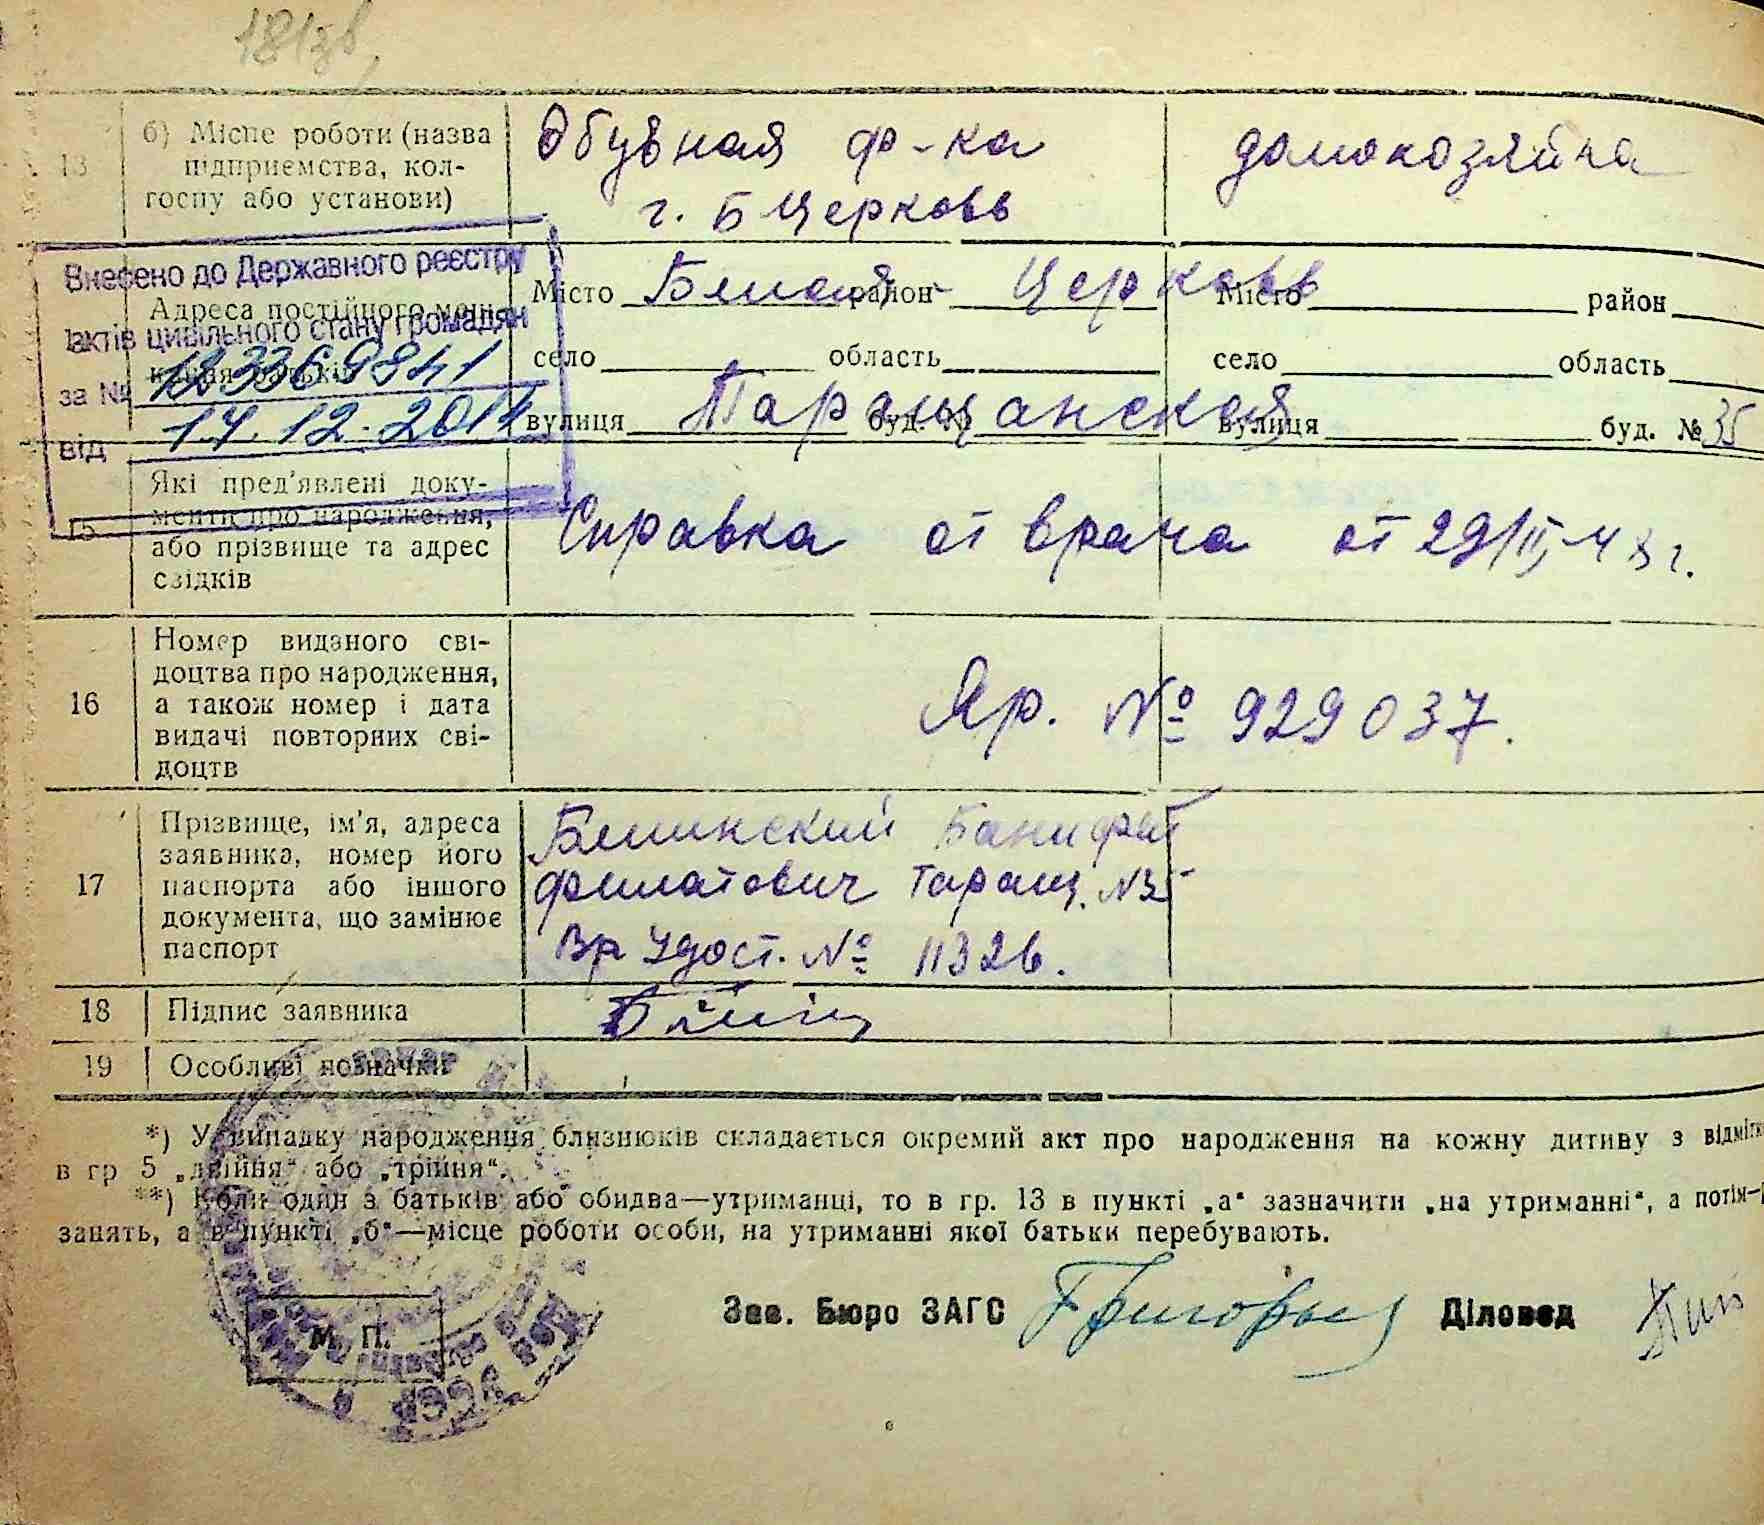 181зв
13 б) Місце роботи (назва Обувная ф-ка домохозяйка
підприємства, кол-
госпу або установи) г. БЦерковь
Внесено до Державного реєстру
Місто Белая район Церковь Місто район
Адреса постійного меш-
актів цивільного стану громадян
село область село область
кання батьків
за №
вулиця Таращанская буд. № вулиця буд. № 35
від 17.12.2014
15 Які пред'явлені доку- Справка от врача от 29/II-48 г.
менти про народження,
або прізвище та адрес
свідків
16 Номер виданого сві- Яр. № 929037.
доцтва про народження,
а також номер і дата
видачі повторних сві-
доцтв
17 Прізвище, ім'я, адреса
заявника, номер його
паспорта або іншого Филатович Таращ. №35
документа, що замінює
паспорт Вр Удост. № 11326.
18 Підпис заявника
19 Особливі позначки
*) У випадку народження близнюків складається окремий акт про народження на кожну дитину з відмітк
в гр 5 „двійня“ або „трійня“.
**) Коли один з батьків або обидва—утриманці, то в гр. 13 в пункті „а“ зазначити „на утриманні“, а потім—
занять, а в пункті „б“—місце роботи особи, на утриманні якої батьки перебувають.
Зав. Бюро ЗАГС Діловод
М. П.